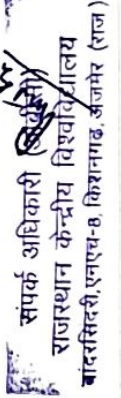 संपर्क अधिकारी
राजस्थान केन्द्रीय विश्वविद्यालय
बांदरसिंदरी, एनएच-8, किशनगढ़, अजमेर (राज)